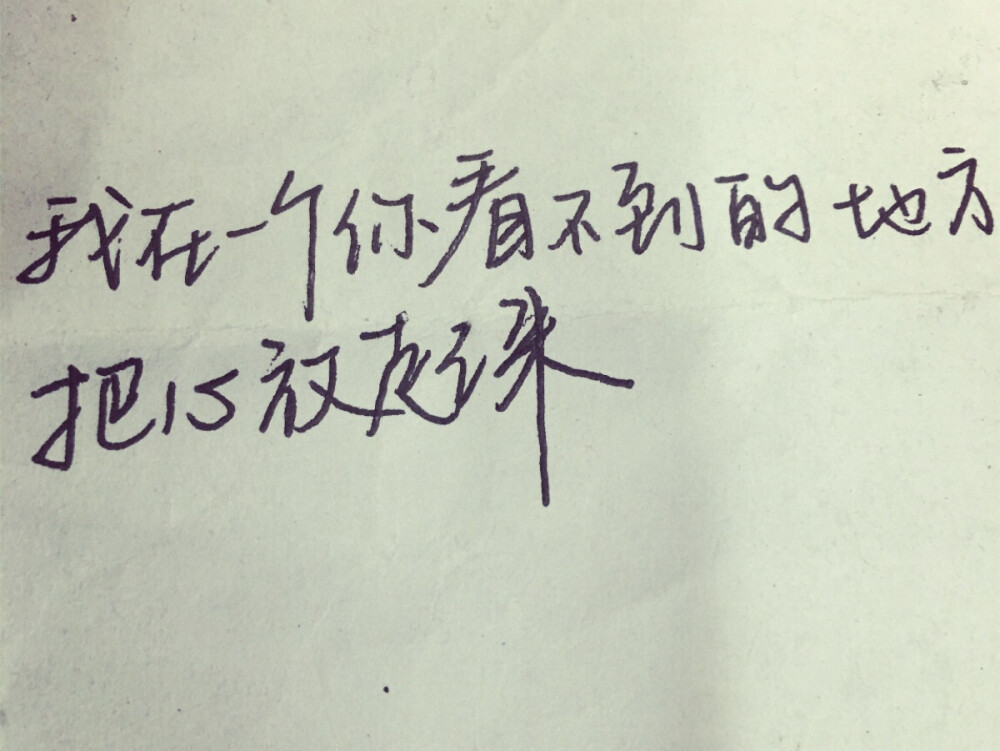 我在一个你看不到的地方
把心放起来